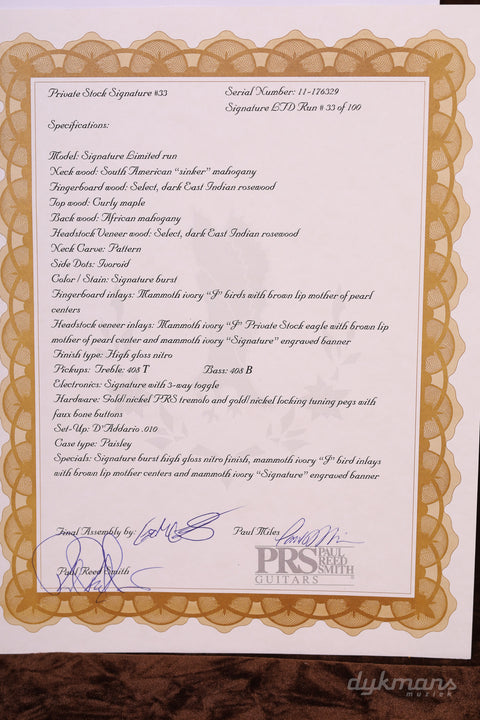 Private Stock Signature #33
Serial Number: 11-176329
Signature LTD Run # 33 of 100
Specifications:
Model: Signature Limited run
Neck wood: South American "sinker" mahogany
Fingerboard wood: Select, dark East Indian rosewood
Top wood: Curly maple
Back wood: African mahogany
Headstock Veneer wood: Select, dark East Indian rosewood
Neck Carve: Pattern
Side Dots: Ivoroid
Color / Stain: Signature burst
Fingerboard inlays: Mammoth ivory "J" birds with brown lip mother of pearl
centers
Headstock veneer inlays: Mammoth ivory "J" Private Stock eagle with brown lip
mother of pearl center and mammoth ivory "Signature" engraved banner
Finish type: High gloss nitro
Pickups: Treble: 408 T Bass: 408 B
Electronics: Signature with 3-way toggle
Hardware: Gold/nickel PRS tremolo and gold/nickel locking tuning pegs with
faux bone buttons
Set-Up: D'Addario .010
Case type: Paisley
Specials: Signature burst high gloss nitro finish, mammoth ivory "J" bird inlays
with brown lip mother centers and mammoth ivory "Signature" engraved banner
Final Assembly by:
Paul Miles
Paul Reed Smith
PRS PAUL REED SMITH
GUITARS
dykmans
muziek